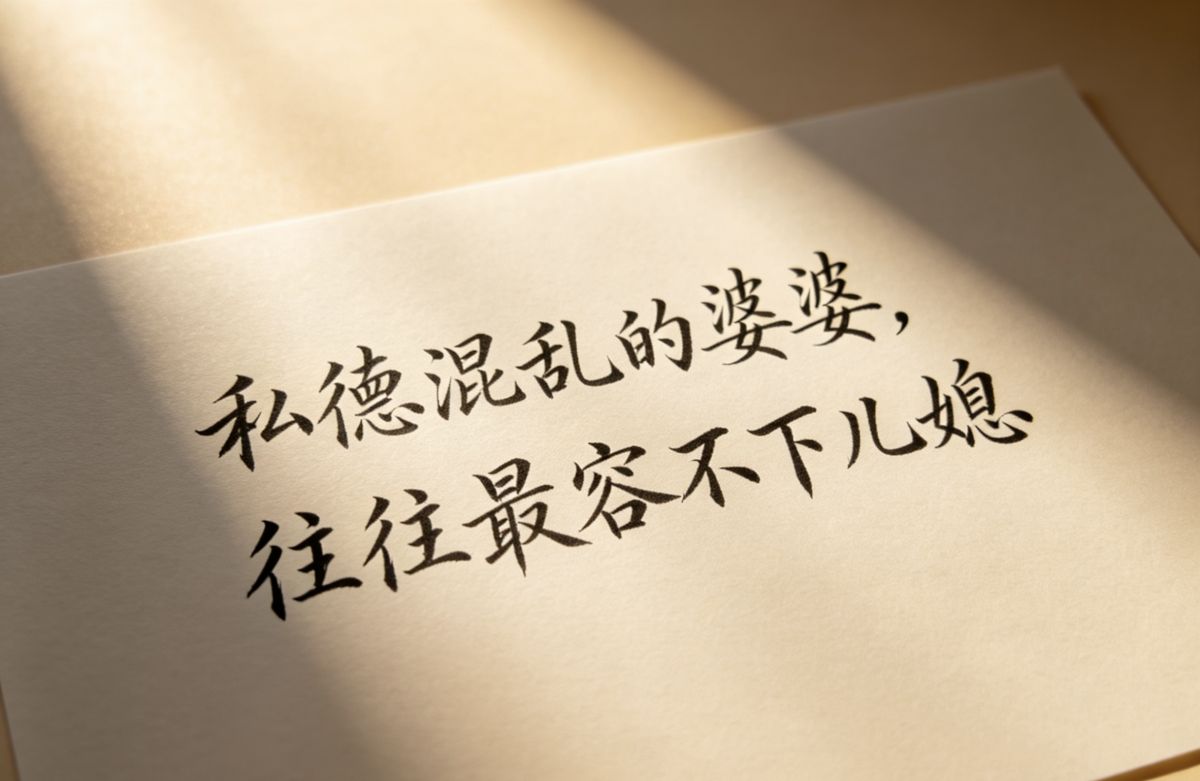 私德混乱的婆婆，
往往最容不下儿媳